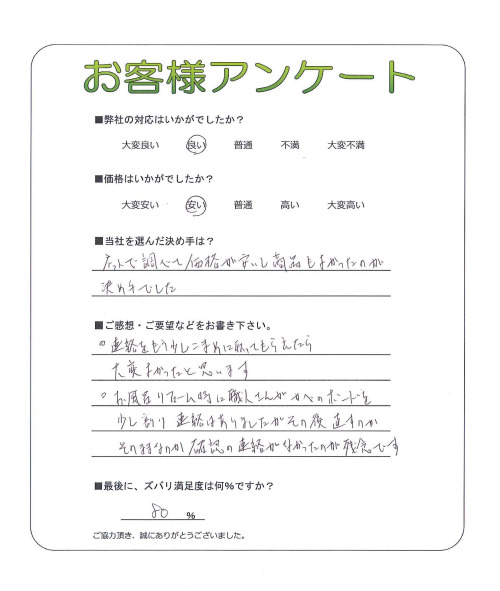 お客様アンケート
■弊社の対応はいかがでしたか?
大変良い 良い 普通 不満 大変不満
■価格はいかがでしたか?
大変安い 安い 普通 高い 大変高い
■当社を選んだ決め手は?
ネットで調べて価格が安いし商品もよかったのが
決め手でした
■ご感想・ご要望などをお書き下さい。
○連絡をもう少しこまめに取ってもらえたら
大変よかったと思います
○お風呂リフォーム時に職人さんがカベのボードを
少し割り連絡はありましたがその後直すのか
そのままなのか確認の連絡がなかったのが残念です
■最後に、ズバリ満足度は何%ですか?
80 %
ご協力頂き、誠にありがとうございました。